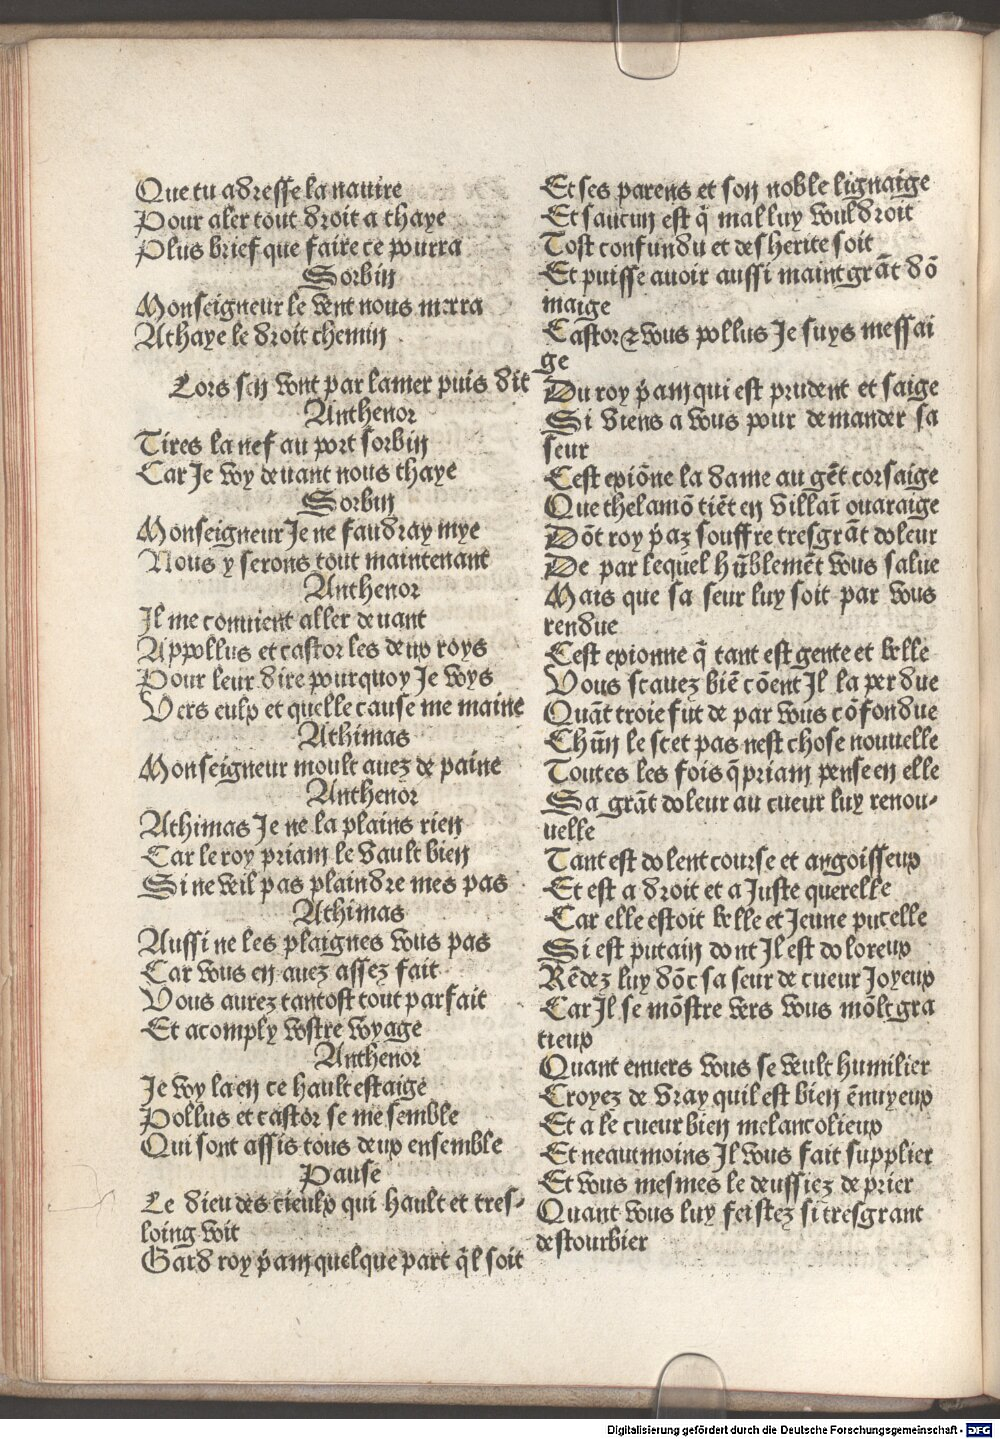 Que tu adresse la nauire
Pour aler tout droit a thaye
Plus brief que faire ce pourra
Sorbin
Monseigneur le vent nous merra
A thaye le droit chemin
Lors sen vont par la mer puis dit
Anthenor
Tires la nef au port sorbin
Car Je voy deuant nous thaye
Sorbin
Monseigneur Je ne fauldray mye
Nous y serons tout maintenant
Anthenor
Il me conuient aller deuant
A ppollus et castor les deux roys
Pour leur dire pourquoy Je voys
Vers eulx et quelle cause me maine
Athimas
Monseigneur moult auez de paine
Anthenor
Athimas Je ne la plains rien
Car le roy priam le vault bien
Si ne veil pas plaindre mes pas
Athimas
Aussi ne les plaignes vous pas
Car vous en auez assez fait
Vous aurez tantost tout parfait
Et acomply vostre voyage
Anthenor
Je voy la en ce hault estaige
Pollus et castor se me semble
Qui sont assis tous deux ensemble
Pause
Le dieu des cieulx qui hault et tres-
loing voit
Gard roy p̄am quelque part q̄l soit
Et ses parens et son noble lignaige
Et saucun est q̄ mal luy vouldroit
Tost confundu et desherite soit
Et puisse auoir aussi maint grāt dō
maige
Castor ⁊ vous pollus Je suys messai
ge
Du roy p̄am qui est prudent et saige
Si viens a vous pour demander sa
seur
Cest epiōne la dame au gēt corsaige
Que thelamō tiēt en villaī ouaraige
Dōt roy p̄az souffre tresgrāt doleur
De par lequel hūblemēt vous salue
Mais que sa seur luy soit par vous
rendue
Cest epionne q̄ tant est gente et belle
Vous scauez biē cōent Il la perdue
Quāt troie fut de par vous cōfondue
Chūn le scet pas nest chose nouuelle
Toutes les fois q̄ priam pense en elle
Sa grāt doleur au cueur luy renou-
uelle
Tant est dolent course et angoisseux
Et est a droit et a Juste querelle
Car elle estoit belle et Jeune pucelle
Si est putain dont Il est doloreux
Rēdez luy dōc sa seur de cueur Joyeux
Car Il se mōstre vers vous mōlt gra
tieux
Quant enuers vous se veult humilier
Croyez de vray quil est bien ēnuyeux
Et a le cueur bien melancolieux
Et neautmoins Il vous fait supplier
Et vous mesmes le deussiez de prier
Quant vous luy feistez si tresgrant
destourbier
Digitalisierung gefördert durch die Deutsche Forschungsgemeinschaft - DFG